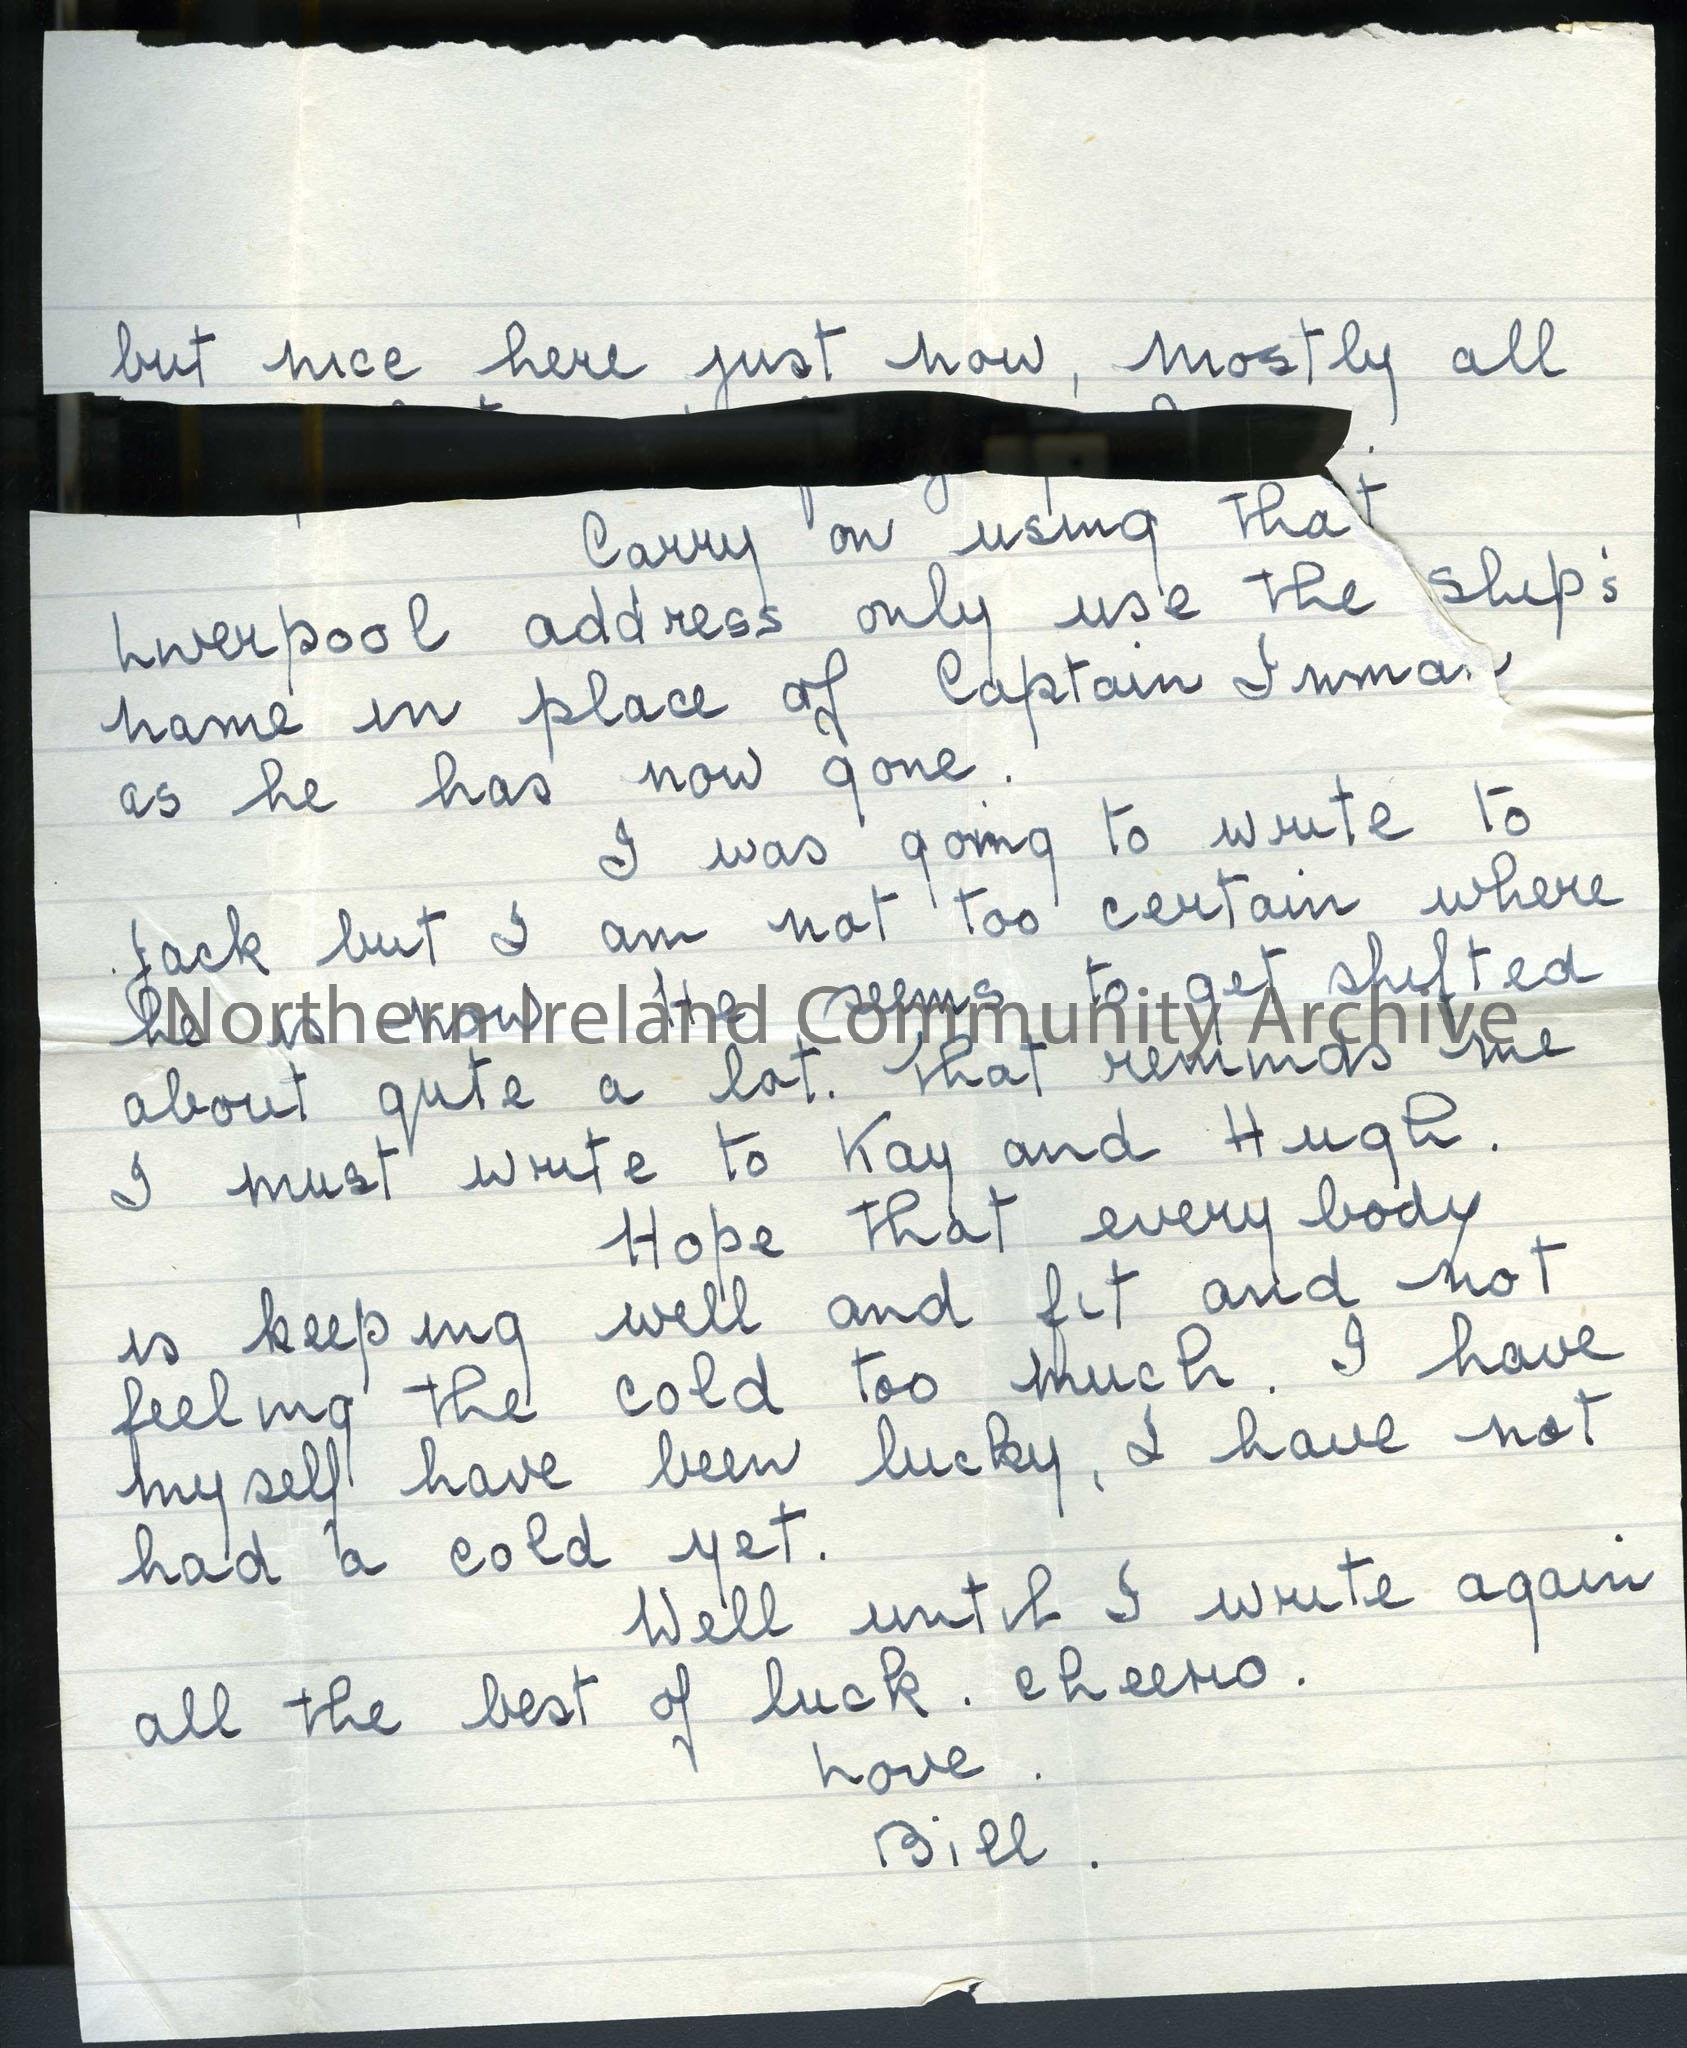 but nice here just now, mostly all
Carry on using that
Liverpool address only use the ship's
name in place of Captain Inman
as he has now gone.
I was going to write to
Jack but I am not too certain where
he is now. He seems to get shifted
Northern Ireland Community Archive
about quite a lot. That reminds me
I must write to Kay and Hugh.
Hope that every body
is keeping well and fit and not
feeling the cold too much. I have
myself have been lucky, I have not
had a cold yet.
Well until I write again
all the best of luck. cheerio.
Love.
Bill.